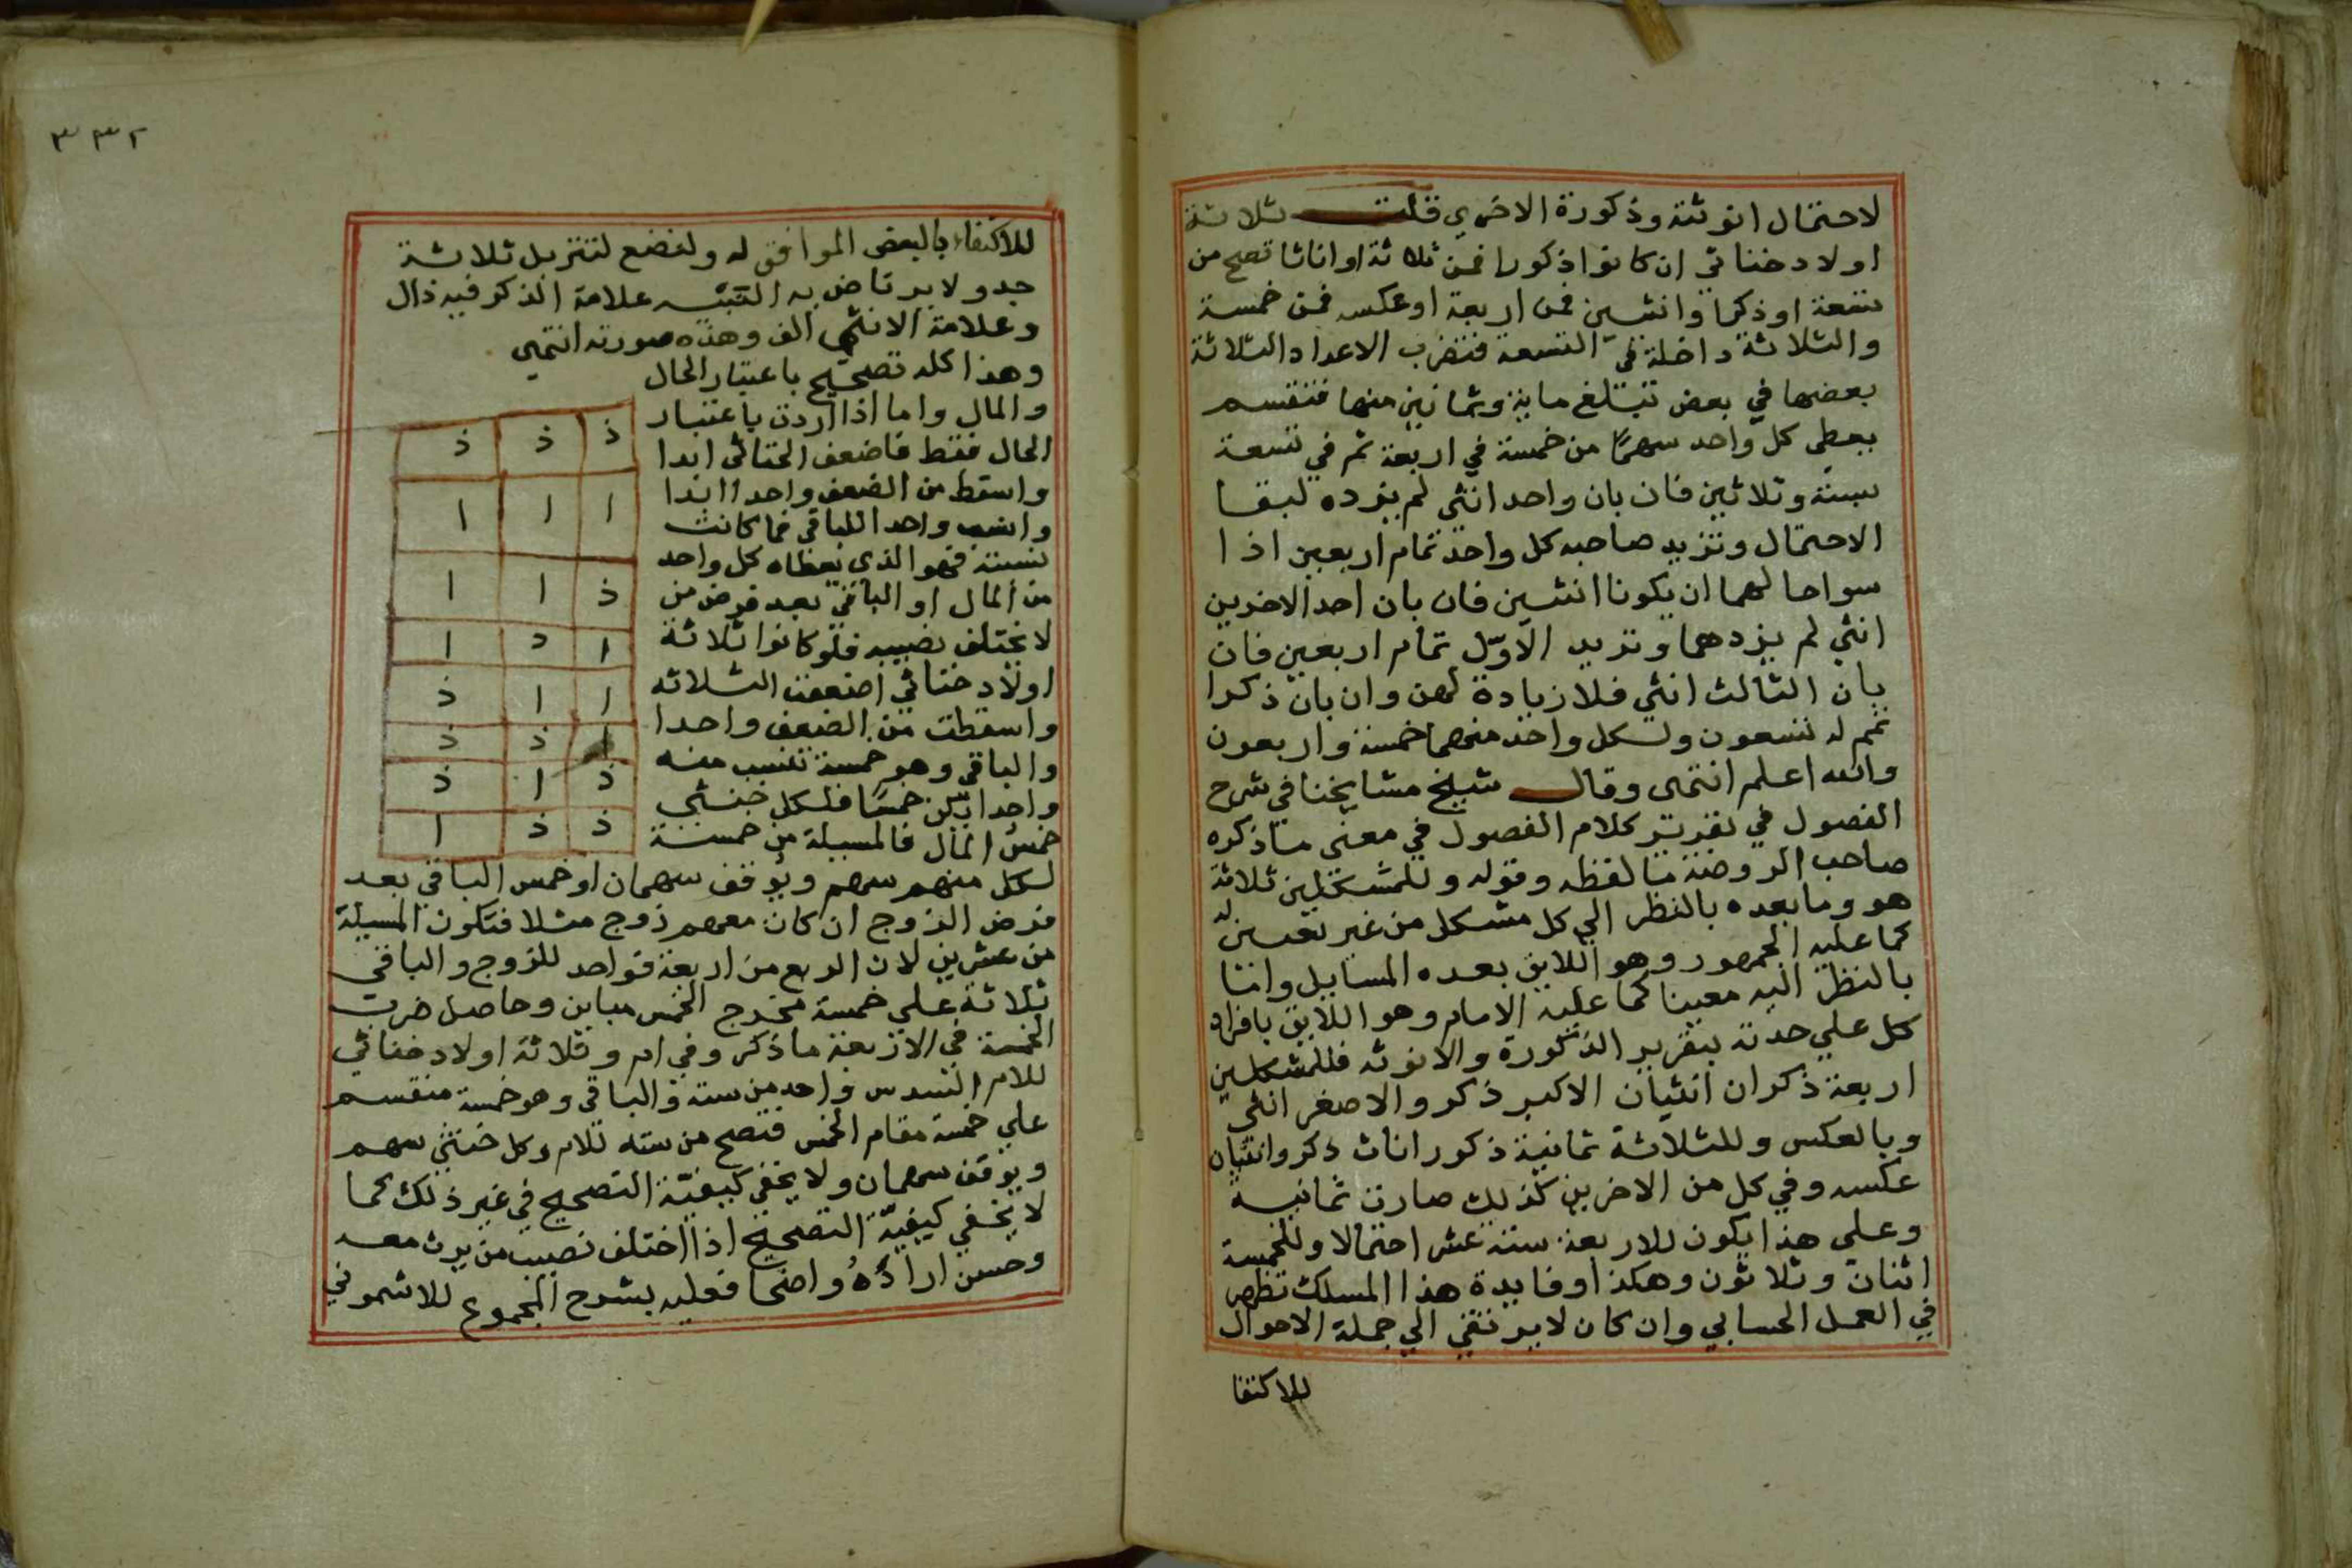 لاحتمال انوثته وذكورة الاخري قلت ثلاثة
اولاد خناثي ان كانوا ذكورا فمن ثلاثة او اناثا تصح من
تسعة او ذكرا وانثيين فمن اربعة او عكسه فمن خمسة
والثلاثة داخلة في التسعة فتضرب الاعداد الثلاثة
بعضها في بعض تبتلغ ماية وثمانين منها فتقسم
يعطي كل واحد سهما من خمسة في اربعة ثم في تسعة
بستة وثلاثين فان بان واحد انثي لم يزده لبقا
الاحتمال وتزيد صاحبه كل واحد تمام اربعين اذا
سواحا لهما ان يكونا انثيين فان بان احد الاخرين
انثي لم يزدهما وتزيد الاوّل تمام اربعين فان
بان الثالث انثي فلا زيادة لهن وان بان ذكرا
تمم له تسعون ولكل واحد منهما خمسة واربعون
والله اعلم انتهى وقال شيخ مشايخنا في شرح
الفصول في تقرير كلام الفصول في معنى ما ذكره
صاحب الروضة ما لفظه وقوله وللمشكلين ثلاثة
هو وما بعده بالنظر الي كل مشكل من غير تعيين له
كما عليه الجمهور وهو اللايق بعده المسايل واما
بالنظر اليه معينا كما عليه الامام وهو اللايق بافراد
كل علي حدته بتقرير الذكورة والانوثه فللمشكلين
اربعة ذكران انثيان الاكبر ذكر والاصغر انثي
وبالعكس وللثلاثة ثمانية ذكور اناث ذكر وانثيان
عكسه وفي كل من الاخرين كذلك صارت ثمانية
وعلي هذا يكون للاربعة ستة عشر احتمالا وللخمسة
اثنان وثلاثون وهكذا وفايدة هذا المسلك تظهر
في العمل الحسابي وان كان لا يرتقي الي جملة الاحوال
للاكتفا
٣٣٢
للاكتفاء بالبعض الموافق له ولنضع لتنزيل ثلاثة
جدولا يرتاض به علامة الذكر فيه ذال
وعلامة الانثي الف وهذه صورته انتهى
وهذا كله تصحيح باعتبار الحال
والمال واما اذا اردت باعتبار
الحال فقط فاضعف الخناثي ابدا
واسقط من الضعف واحدا ابدا
وانسب واحدا للباقي فما كانت
نسبته فهو الذي يعطاه كل واحد
من المال او الباقي بعد فرض من
لا يختلف نصيبه فلو كانوا ثلاثة
اولاد خناثي اضعفت الثلاثه
واسقطت من الضعف واحدا
والباقي وهو خمسة تنسب منه
واحدا يكن خمسا فلكل خنثي
خمس المال فالمسيلة من خمسة
ذ ذ ذ
ا ا ا
ذ ا ا
ا ذ ا
ا ا ذ
ا ذ ذ
ذ ا ذ
ذ ذ ا
لكل منهم سهم ويوقف سهمان او خمس الباقي بعد
فرض الزوج ان كان معهم زوج مثلا فتكون المسيلة
من عشرين لان الربع من اربعة فواحد للزوج والباقي
ثلاثة علي خمسة مخرج الخمس مباين وحاصل ضرب
الخمسة في الاربعة ما ذكر وفي ام وثلاثة اولاد خناثي
للام السدس واحد من ستة والباقي وهو خمسة منقسم
علي خمسة مقام الخمس فتصح من سته للام وكل خنثي سهم
ويوقف سهمان ولا يخفي كيفيّة التصحيح في غير ذلك كما
لا يخفي كيفيّة التصحيح اذا اختلف نصيب من يرث معه
وحسن اراده واضحا فعليه بشرح المجموع للاشموني